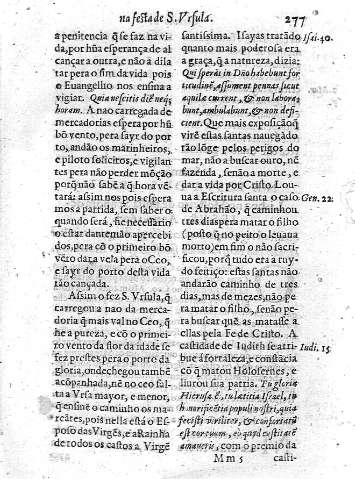 na festa de S. Vrsula.
277
a penitencia q̃ se faz na vi-
da, por hũa esperança de al-
cançar a outra, e não a dila
tar pera o fim da vida pois
o Euangelho nos ensina a
vigiar. Quia nescitis diẽ neq;
horam. A nao carregada de
mercadorias espera por hũ
bõ vento, pera sayr do por
to, andão os marinheiros,
e piloto solicitos, e vigilan
tes pera não perder mõção
porq̃ não sabẽ a q̃ hora vẽ-
tará: assim nos pois espera
mos a partida, sem saber o
quando será, he necessario
o estar dantemão apercebi
dos, pera cõ o primeiro bõ
vẽto dar a vela pera o Ceo,
e sayr do porto desta vida
tão cançada.
Assim o fez S. Vrsula, q̃
carregou a nao da merca-
doria q̃ mais val no Ceo, q̃
he a pureza, e cõ o primei-
ro vento da flor da idade se
fez prestes pera o porto da
gloria, onde chegou tambẽ
acõpanhada, nẽ no ceo fal-
ta a Vrsa mayor, e menor,
q̃ ensine o caminho os ma-
reãtes, pois nella está o Es-
poso das Virgẽs, e a Rainha
de todos os castos a Virgẽ
santissima. Isayas tratãdo
quanto mais poderosa era
a graça, q̃ a natureza, dizia:
Qui sperãt in Dño habebunt for
titudinẽ, assument pennas sicut
aquilæ current, & non labora
bunt, ambulabunt, & non defi-
cient. Que mais exposiçaõ q̃
virẽ estas santas nauegãdo
tão lõge pelos perigos do
mar, não a buscar ouro, nẽ
fazenda, senão a morte, e
dar a vida por Cristo. Lou-
ua a Escritura santa o caso
de Abrahão, q̃ caminhou
tres dias pera matar o filho
(posto q̃ no peito o leuaua
morto) em fim o não sacri-
ficou, porq̃ tudo era a ruy-
do feitiço: estas santas não
andarão caminho de tres
dias, mas de mezes, não pe
ra matar o filho, senão pe-
ra buscar quẽ as matasse a
ellas pela Fe de Cristo. A
castidade de Iudith se atri-
bue á fortaleza, e constãcia
cõ q̃ matou Holofernes, e
liurou sua patria. Tu gloria
Hierusalẽ, tu lætitia Israel, tu
honorificẽtia populi nostri, quia
fecisti viriliter, & confortatũ
est cor tuum, eo quod castitatẽ
amaueris, com o premio da
Isai. 40.
Gen. 22.
Iudi. 15
Mm 5
casti-